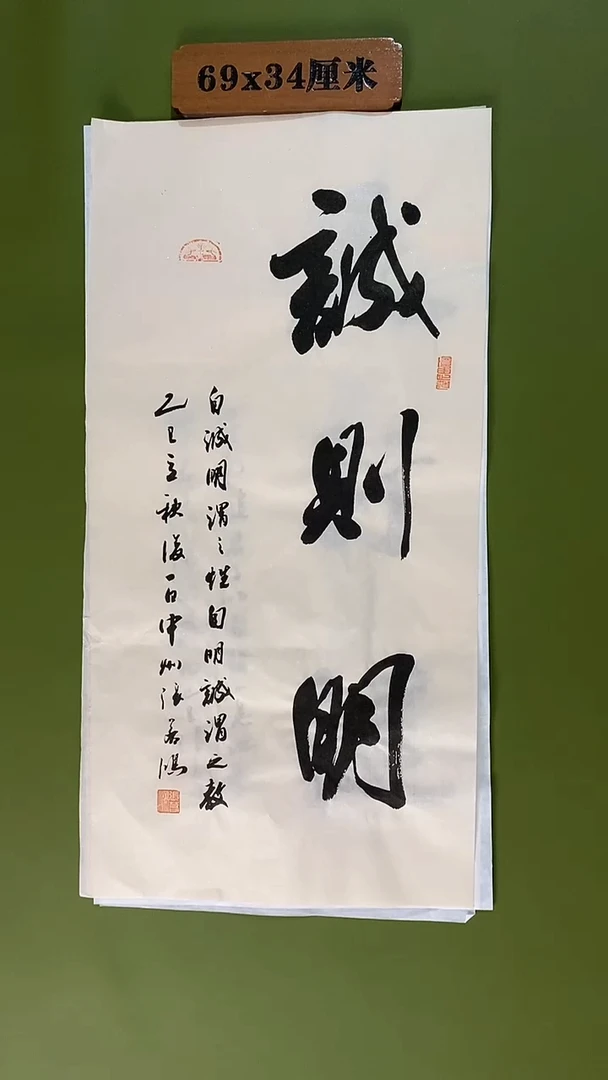 69x34厘米
誠則明
自誠明謂之性自明誠謂之教
乙巳立秋後一日中州張善鴻